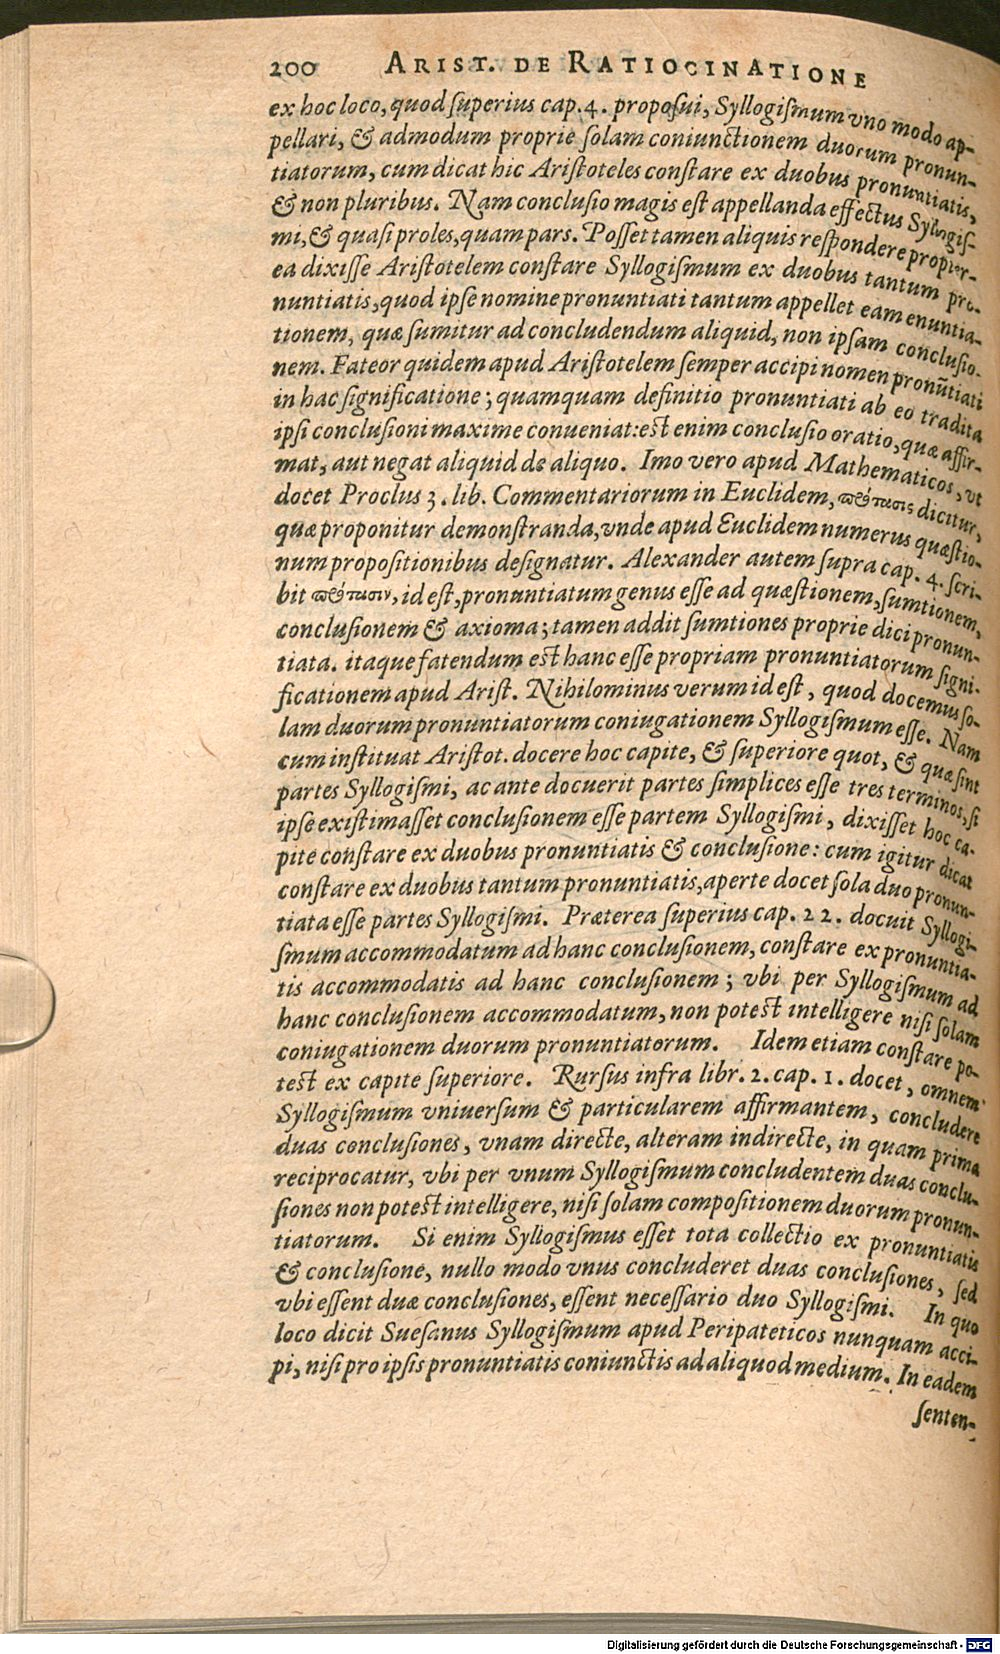 200 ARIST. DE RATIOCINATIONE
ex hoc loco, quod ſuperius cap. 4. propoſui, Syllogiſmum vno modo ap-
pellari, & admodum proprie ſolam coniunctionem duorum pronun-
tiatorum, cum dicat hic Ariſtoteles conſtare ex duobus pronuntiatis,
& non pluribus. Nam concluſio magis eſt appellanda effectus Syllogiſ-
mi, & quaſi proles, quam pars. Poſſet tamen aliquis reſpondere propter-
ea dixiſſe Ariſtotelem conſtare Syllogiſmum ex duobus tantum pro-
nuntiatis, quod ipſe nomine pronuntiati tantum appellet eam enuntia-
tionem, quæ ſumitur ad concludendum aliquid, non ipſam concluſio-
nem. Fateor quidem apud Ariſtotelem ſemper accipi nomen pronũtiati
in hac ſignificatione; quamquam definitio pronuntiati ab eo tradita
ipſi concluſioni maxime conueniat: eſt enim concluſio oratio, quæ affir-
mat, aut negat aliquid de aliquo. Imo vero apud Mathematicos, vt
docet Proclus 3. lib. Commentariorum in Euclidem, πρότασις dicitur,
quæ proponitur demonſtranda, vnde apud Euclidem numerus quæſtio-
num propoſitionibus deſignatur. Alexander autem ſupra cap. 4. ſcri-
bit πρότασιν, id eſt, pronuntiatum genus eſſe ad quæſtionem, ſumtionem,
concluſionem & axioma; tamen addit ſumtiones proprie dici pronun-
tiata. itaque fatendum eſt hanc eſſe propriam pronuntiatorum ſigni-
ficationem apud Ariſt. Nihilominus verum id eſt, quod docemus ſo-
lam duorum pronuntiatorum coniugationem Syllogiſmum eſſe. Nam
cum inſtituat Ariſtot. docere hoc capite, & ſuperiore quot, & quæ ſint
partes Syllogiſmi, ac ante docuerit partes ſimplices eſſe tres terminos, ſi
ipſe exiſtimaſſet concluſionem eſſe partem Syllogiſmi, dixiſſet hoc ca-
pite conſtare ex duobus pronuntiatis & concluſione: cum igitur dicat
conſtare ex duobus tantum pronuntiatis, aperte docet ſola duo pronun-
tiata eſſe partes Syllogiſmi. Præterea ſuperius cap. 22. docuit Syllogi-
ſmum accommodatum ad hanc concluſionem, conſtare ex pronuntia-
tis accommodatis ad hanc concluſionem; vbi per Syllogiſmum ad
hanc concluſionem accommodatum, non poteſt intelligere niſi ſolam
coniugationem duorum pronuntiatorum. Idem etiam conſtare po-
teſt ex capite ſuperiore. Rurſus infra libr. 2. cap. 1. docet, omnem
Syllogiſmum vniuerſum & particularem affirmantem, concludere
duas concluſiones, vnam directe, alteram indirecte, in quam prima
reciprocatur, vbi per vnum Syllogiſmum concludentem duas conclu-
ſiones non poteſt intelligere, niſi ſolam compoſitionem duorum pronun-
tiatorum. Si enim Syllogiſmus eſſet tota collectio ex pronuntiatis
& concluſione, nullo modo vnus concluderet duas concluſiones, ſed
vbi eſſent duæ concluſiones, eſſent neceſſario duo Syllogiſmi. In quo
loco dicit Sueſanus Syllogiſmum apud Peripateticos nunquam acci-
pi, niſi pro ipſis pronuntiatis coniunctis ad aliquod medium. In eadem
ſenten-
Digitalisierung gefördert durch die Deutsche Forschungsgemeinschaft - DFG